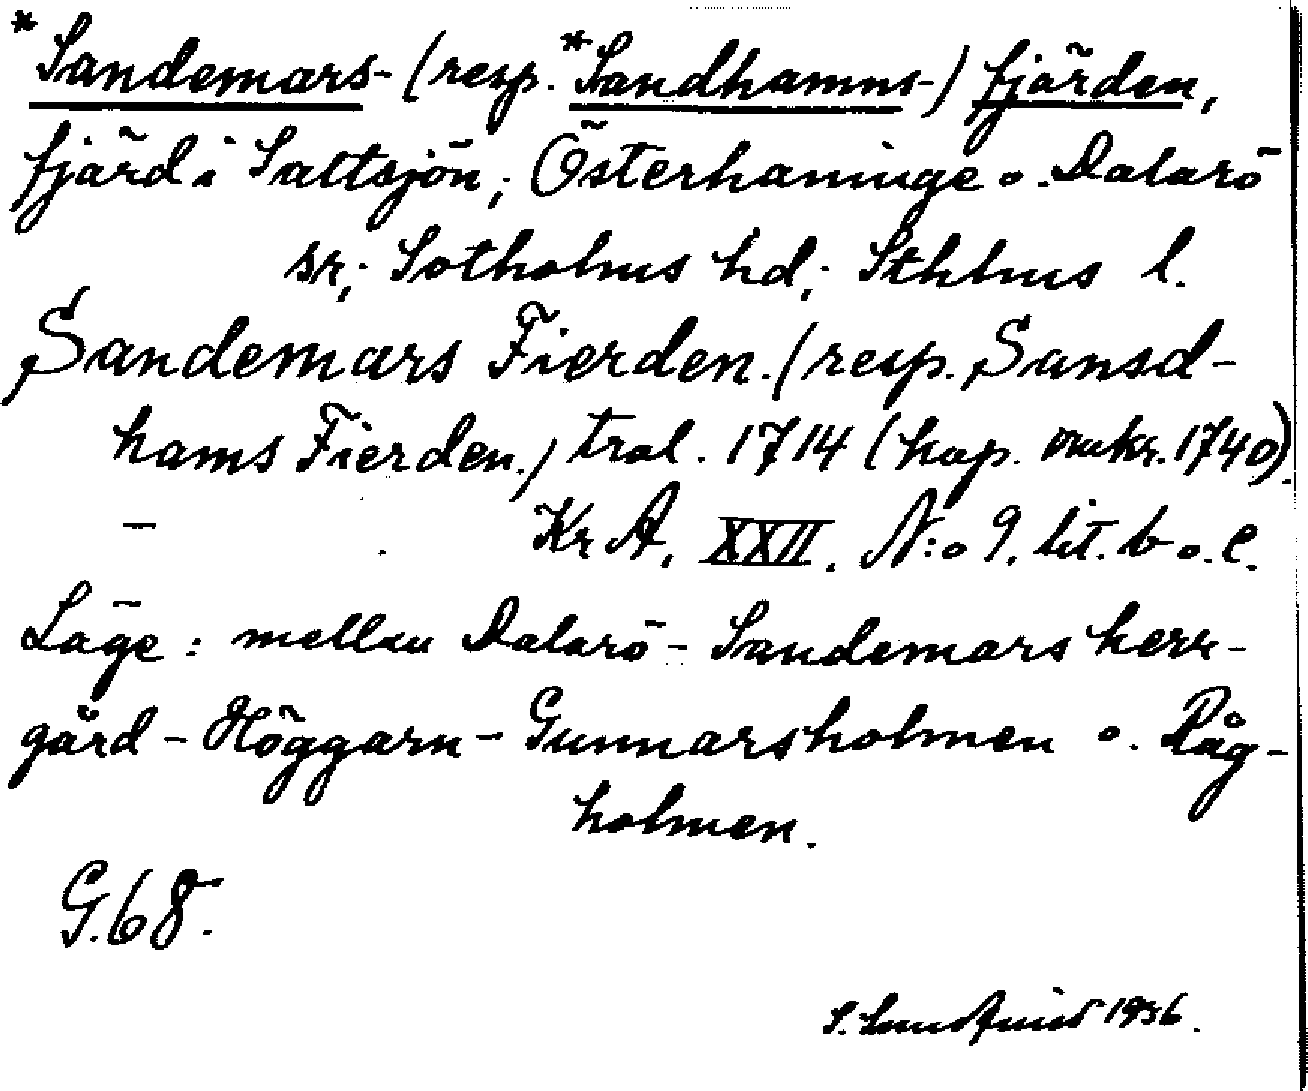 *Sandemars- (resp. *Sandhamns-) fjärden,
fjärd i Saltsjön; Österhaninge o. Dalarö
sr; Sotholms hd; Sthlms l.
Sandemars Fierden. (resp. Sansd-
hams Fierden.) trol. 1714 (kop. omkr. 1740).
– Kr A, XXII. N:o 9. lit. b o. c.
Läge: mellan Dalarö - Sandemars herr-
gård - Höggarn - Gunnarsholmen o. Råg-
holmen.
G.68.
S. Lundquist 1936.